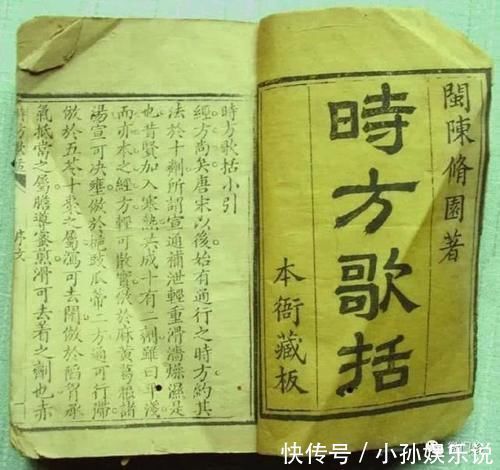 閩陳脩園著
時方歌括
本衙藏板
時方歌括小引
經方尚矣唐宋以後始有通行之時方約其
法於十劑所謂宣通補泄輕重滑濇燥濕是
也昔賢加入寒熱共成十有二劑雖曰平淺
而亦本之經方輕可散實倣於麻黃葛根諸
湯宣可決壅倣於梔豉瓜蒂二方通可行滯
倣於五苓十棗之屬瀉可去閉倣於陷胸承
氣抵當之屬膽導蜜煎滑可去著之劑也赤
時方歌括
快传号／小孙娱乐说